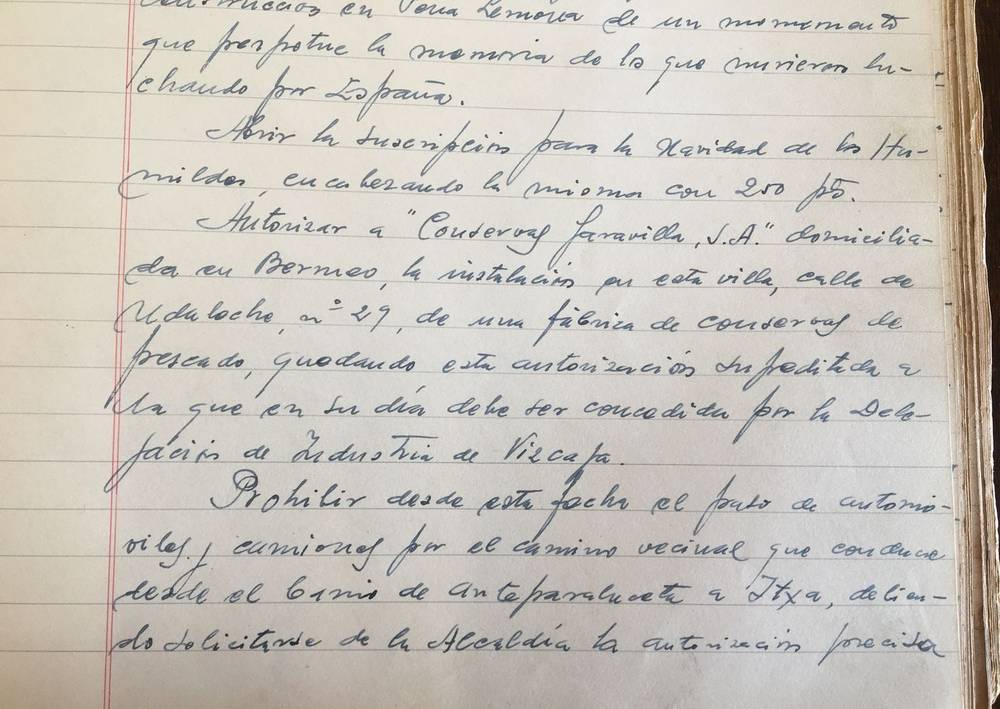 construccion en Peña Lemona de un monumento
que perpetue la memoria de los que murieron lu-
chando por España.
Abrir la suscripción para la Navidad de los Hu-
mildes, encabezando la misma con 250 pts.
Autorizar a "Conservas Garavilla, S.A." domicilia-
da en Bermeo, la instalación en esta villa, calle de
Udaloche, nº 29, de una fábrica de conservas de
pescado, quedando esta autorización supeditada a
la que en su día debe ser concedida por la Dele-
gación de Industria de Vizcaya.
Prohibir desde esta fecha el paso de automo-
viles y camiones por el camino vecinal que conduce
desde el barrio de Anteparaluceta a Itxa, debien-
do solicitarse de la Alcaldía la autorización precisa